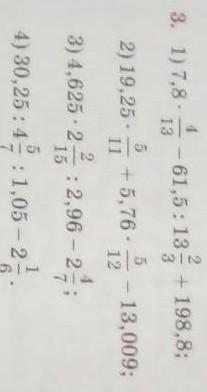 3. 1) 7,8 · 4/13 − 61,5 : 13 2/3 + 198,8;
2) 19,25 · 5/11 + 5,76 · 5/12 − 13,009;
3) 4,625 · 2 2/15 : 2,96 − 2 4/7;
4) 30,25 : 4 5/7 : 1,05 − 2 1/6.